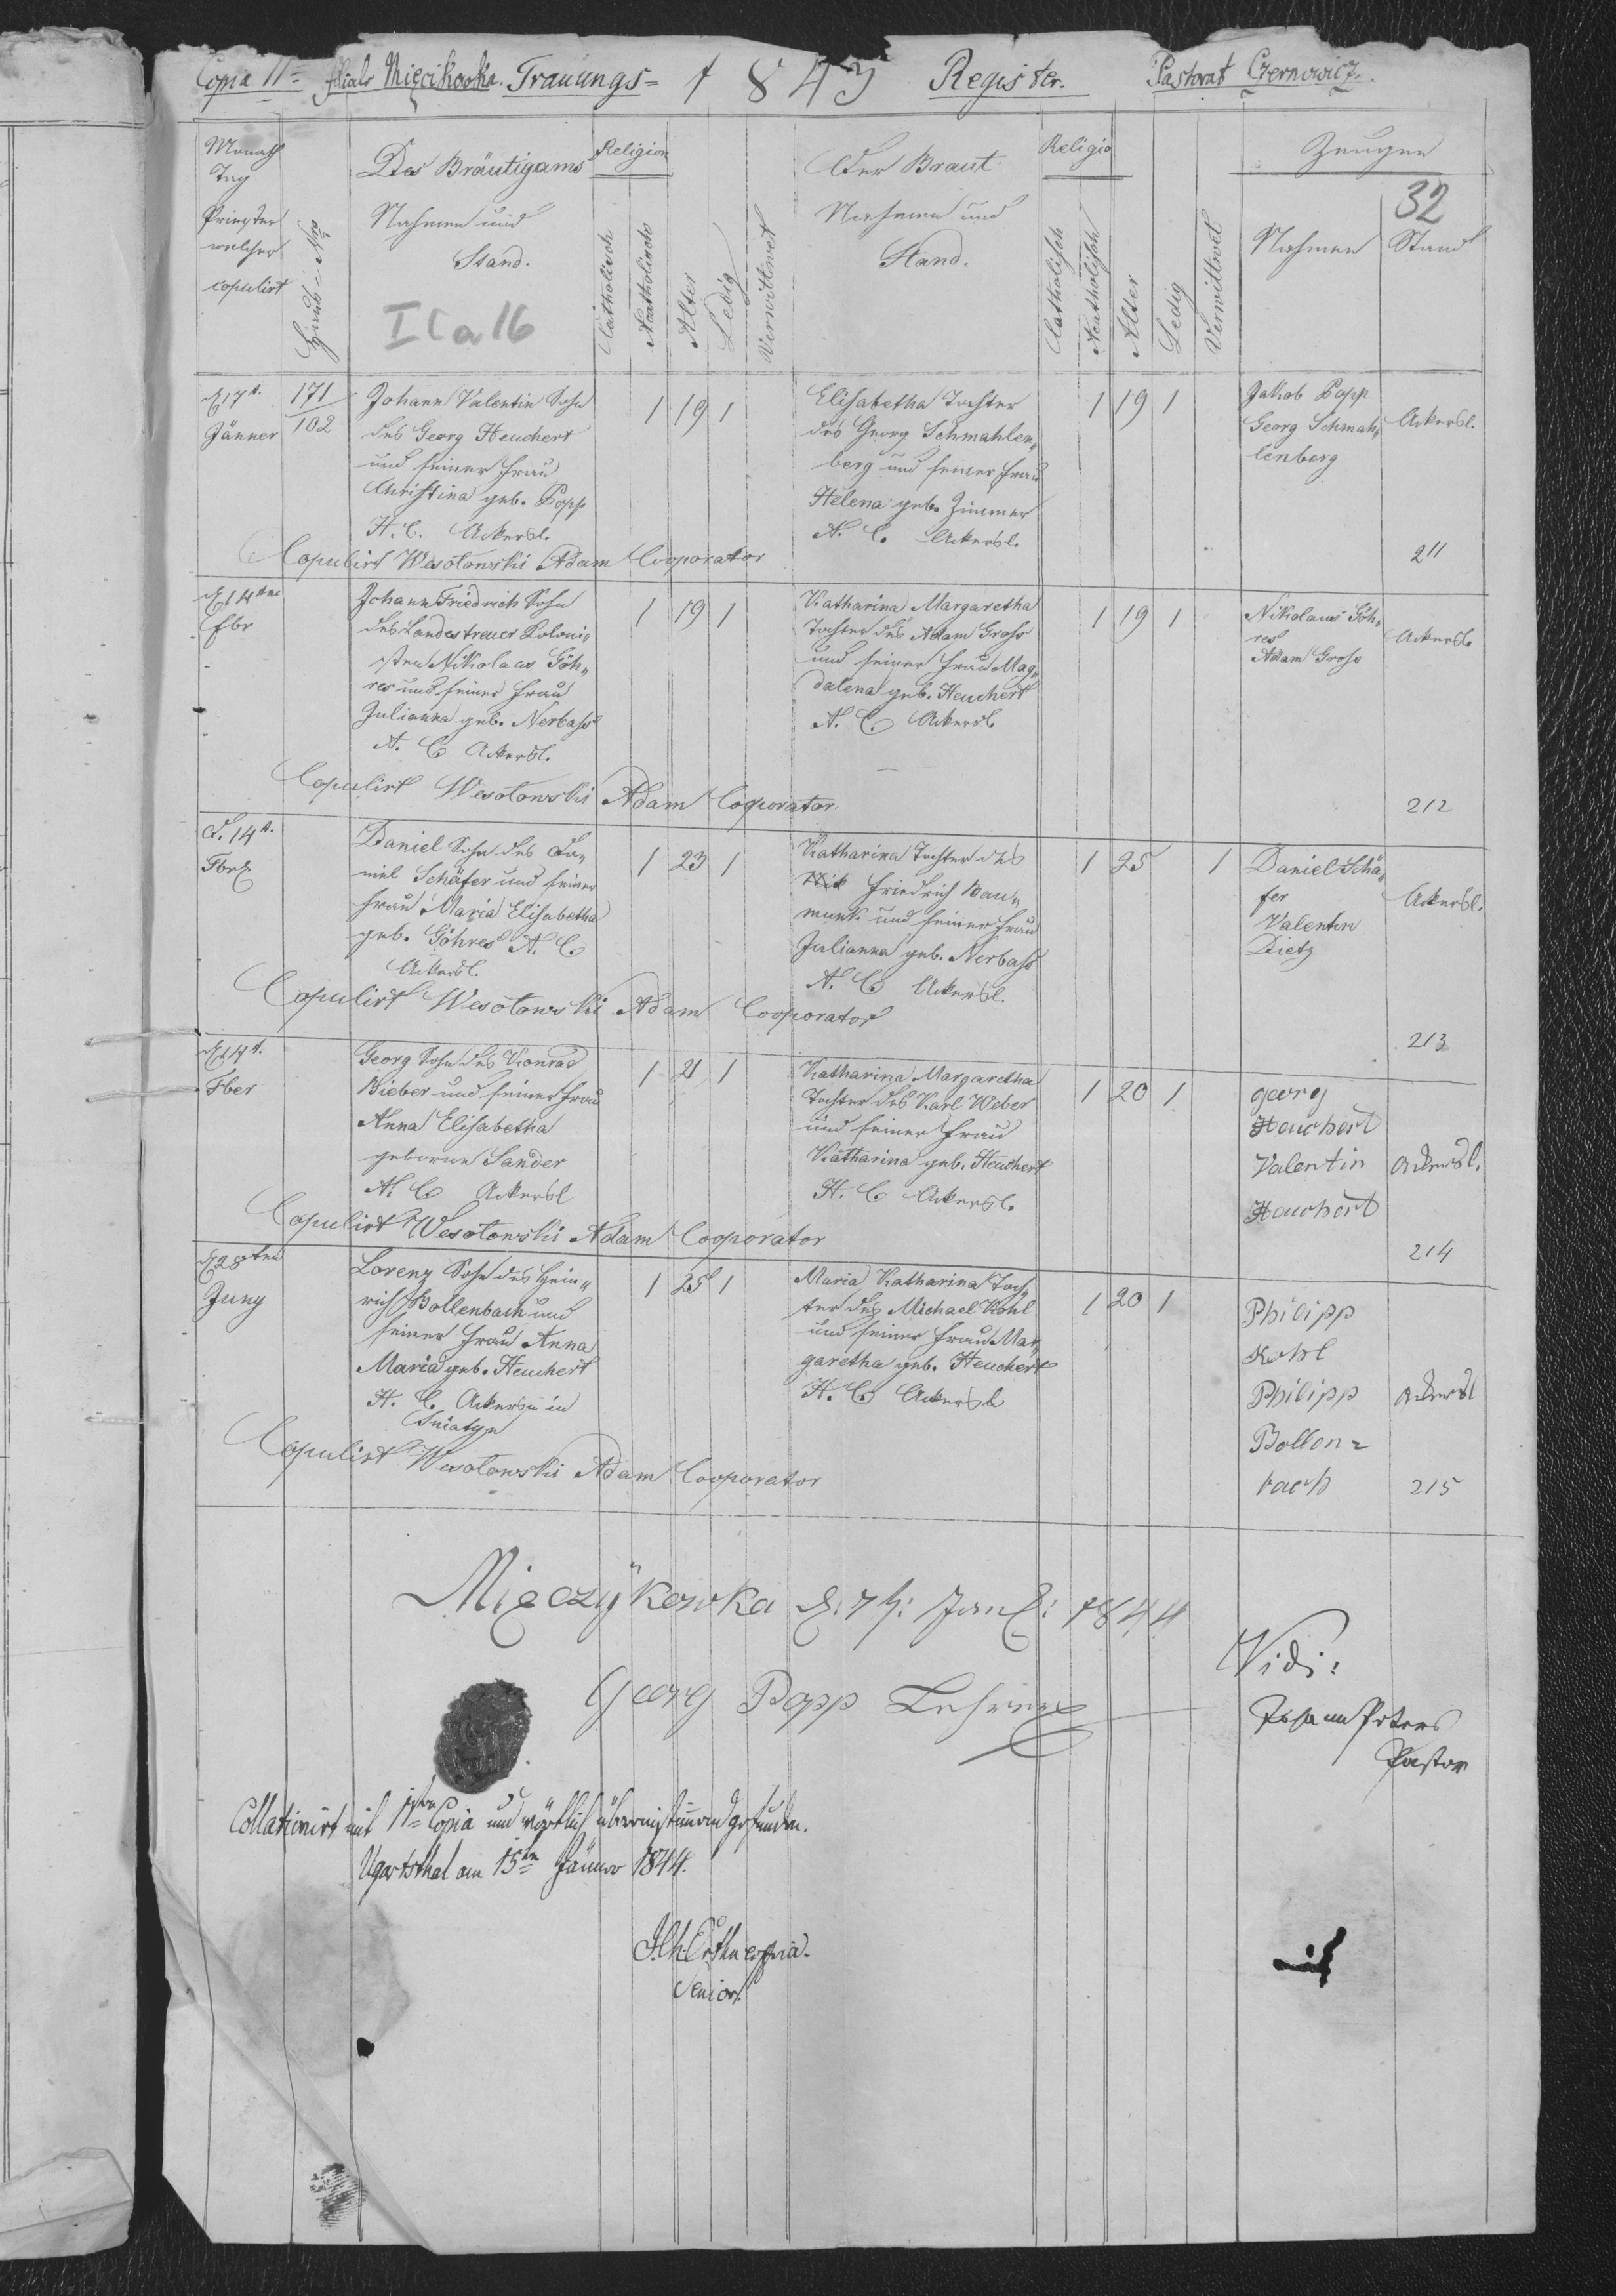 Copia II= filiale Mięcikowka. Trauungs= 1843 Register. Pastorat Czernowicz.
Monath
Tag
Priester
welcher
copulirt
Haus=Nro
Des Bräutigams
Nahmen und
Stand.
I C a 16
Religion
Catholisch
Acatholisch
Alter
Ledig
Verwittwet
Der Braut
Nahmen und
Stand.
Religio
Catholisch
Acatholisch
Alter
Ledig
Verwittwet
Zeugen
32
Nahmen
Stand
D 17t.
Jänner
171
102
Johann Valentin Sohn
des Georg Heuchert
und seiner Frau
Christina geb. Popp
H. C. Ackersl.
1 19 1
Elisabetha Tochter
des Georg Schmahlen„
berg und seiner Frau
Helena geb. Zimmer
A. C. Ackersl.
1 19 1
Jakob Popp
Georg Schmah„
lenberg
Ackersl.
Copulirt Wesołowski Adam Cooporator
211
D 14ten
fbr
Johann Friedrich Sohn
des Landestreuer Koloni„
sten Nikolaus Göh„
res und seiner Frau
Julianna geb. Nerbass
A. C. Ackersl.
1 19 1
Katharina Margaretha
Tochter des Adam Gross
und seiner Frau Mag„
dalena geb. Heuchert
A. C. Ackersl
1 19 1
Nikolaus Göh„
res
Adam Gross
Ackersl.
Copulirt Wesołowski Adam Cooporator.
212
d. 14t.
Fbr
Daniel Sohn des Da„
niel Schäfer und seiner
Frau Maria Elisabetha
geb. Göhres A. C.
Ackersl.
1 23 1
Katharina Tochter des
Friedrich Bau„
munk und seiner Frau
Julianna geb. Nerbass
A. C. Ackersl.
1 25 1
Daniel Schä„
fer
Valentin
Dietz
Ackersl.
Copulirt Wesołowski Adam Cooporator
213
D 14t.
Fber
Georg Sohn des Konrad
Bieber und seiner Frau
Anna Elisabetha
geborne Sander
A. C. Ackersl
1 21 1
Katharina Margaretha
Tochter des Karl Weber
und seiner Frau
Katharina geb. Heuchert
H. C. Ackersl.
1 20 1
georg
Heuchert
Valentin
Heuchert
Ackersl.
Copulirt Wesołowski Adam Cooporator
214
D 28ten
Juny
Lorenz Sohn des Hein„
rich Bollenbach und
seiner Frau Anna
Maria geb. Heuchert
H. C. Ackersm in
Sniatyn
1 25 1
Maria Katharina Toch„
ter des Michael Kohl
und seiner Frau Mar„
garetha geb. Heuchert
H. C. Ackersl
1 20 1
Philipp
Kohl
Philipp
Bollen=
bach
Ackersl
Copulirt Wesołowski Adam Cooporator
215
Mięczykowka d. 7t: Jan: 1844
Georg Popp Lehrer
Vidi:
Johann Peters
Pastor
Collationirt mit Iten Copia und wörtlich übereinstimmend gefunden.
Ugartsthal am 15ten Jänner 1844.
Senior.